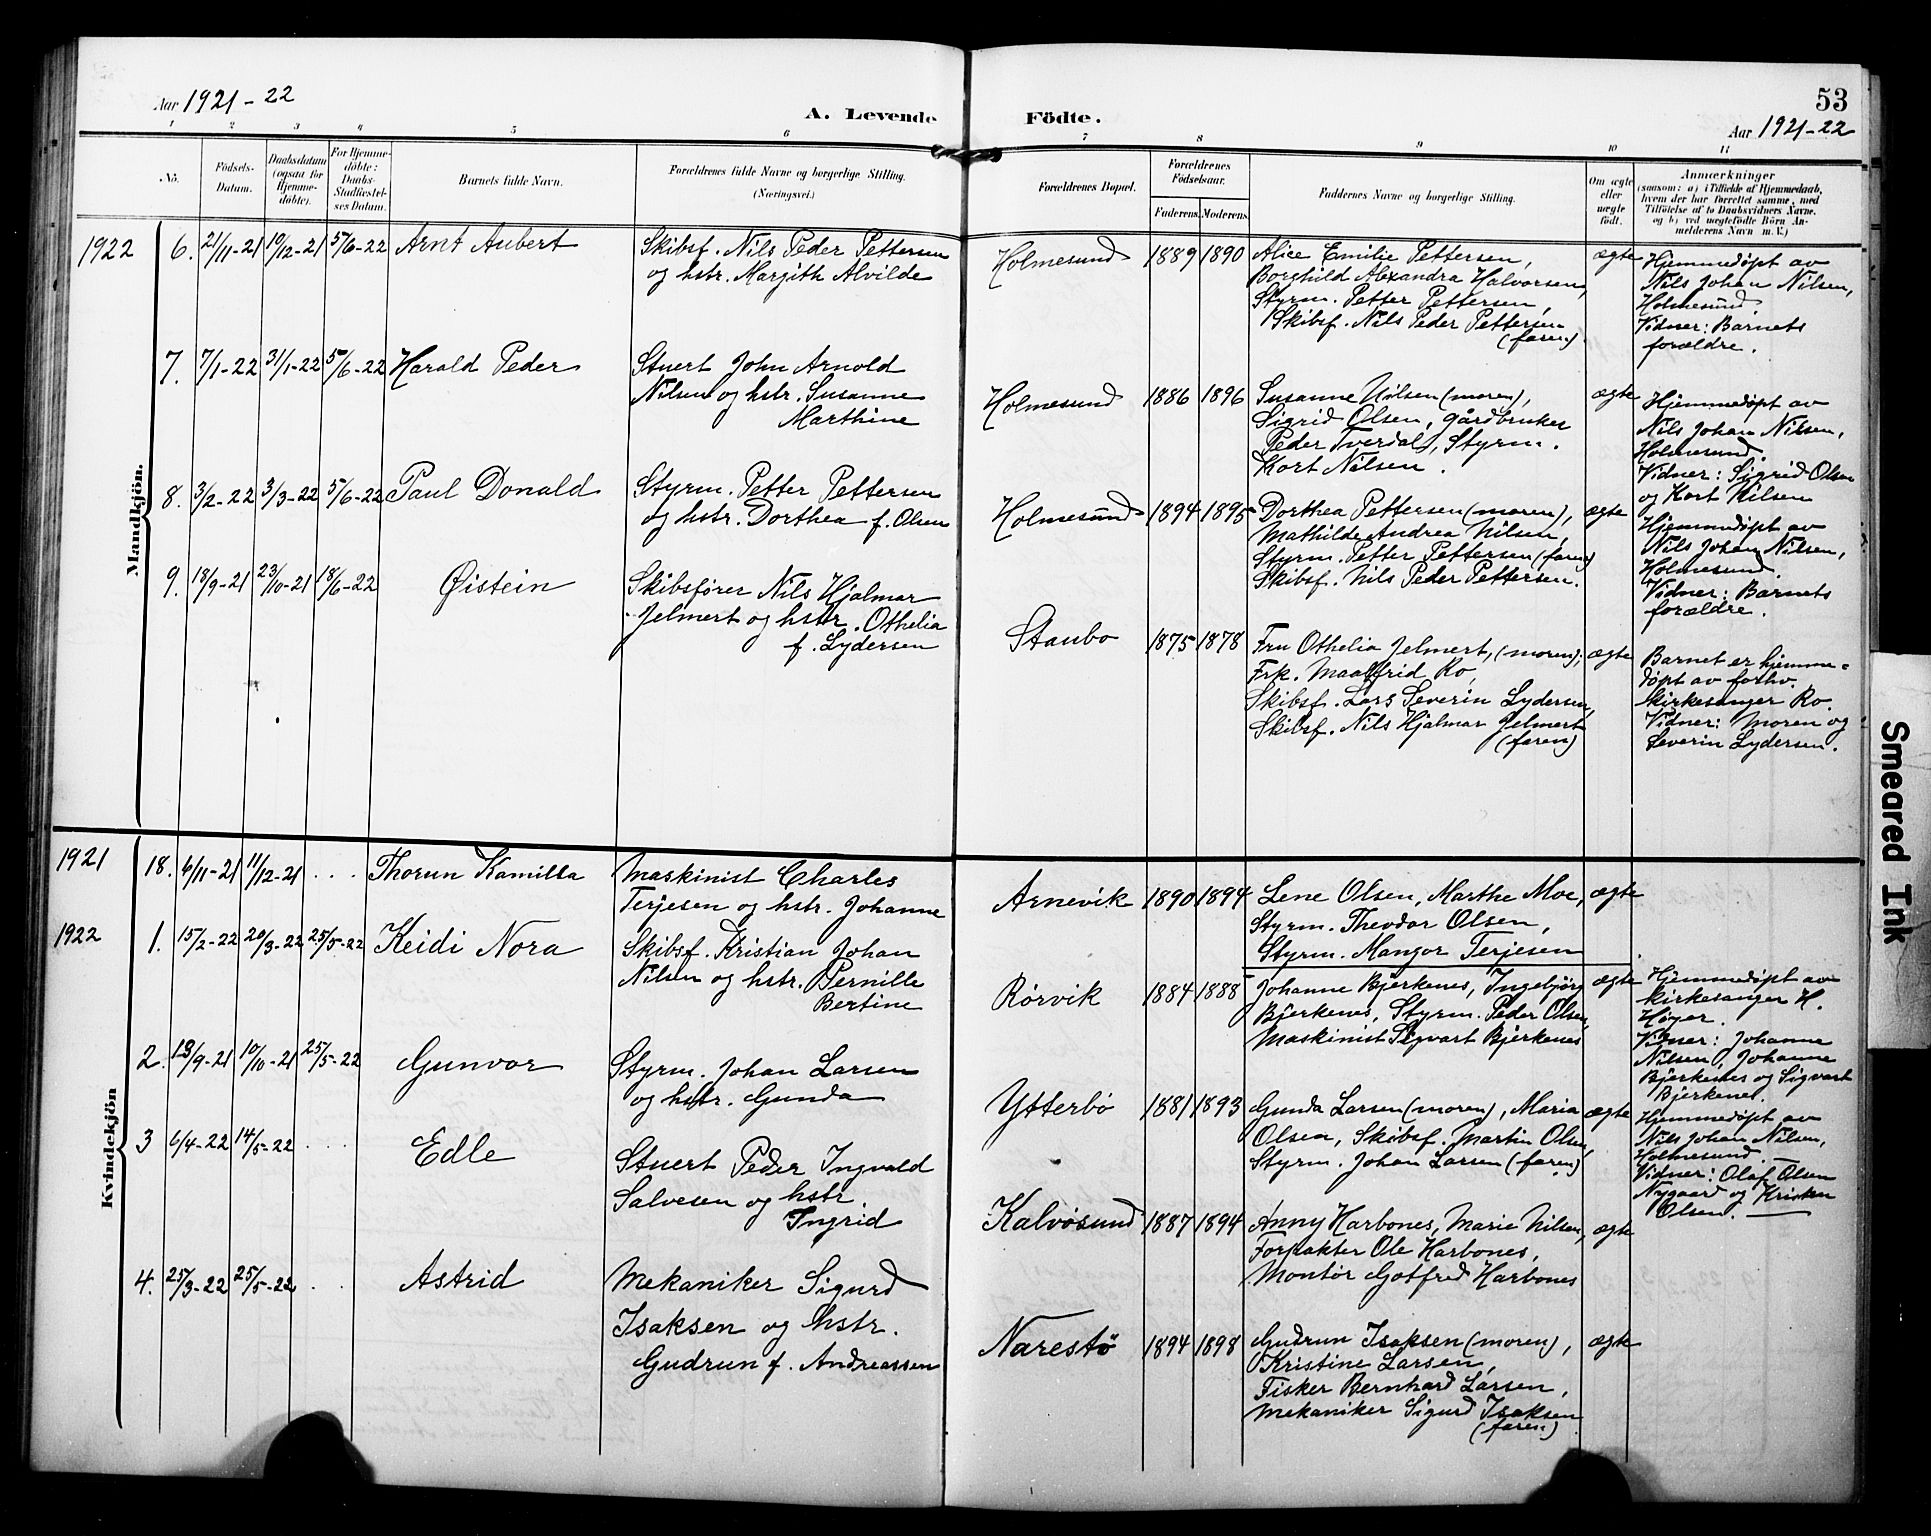 Aar 1921-22
A. Levende
Födte.
53
Aar 1921-22
1
2
3
4
5
6
7
8
9
10
11
No.
Födsels-
Datum.
Daabsdatum
(ogsaa for
Hjemme-
döbte).
For Hjemme-
döbte:
Daabs-
Stadfæstel-
ses Datum.
Barnets fulde Navn.
Forældrenes fulde Navne og borgerlige Stilling.
(Næringsvei.)
Forældrenes Bopæl.
Forældrenes
Födselsaar.
Faderens.
Moderens.
Faddernes Navne og borgerlige Stilling.
Om ægte
eller
uægte
født.
Anmærkninger
(saasom: a) i Tilfælde af Hjemmedaab,
hvem der har forrettet samme, med
Tilföielse af to Daabsvidners Navne,
og b) ved uægtefödte Börn An-
melderens Navn m. V.)
Mandkjön.
1922
6. 21/11-21 10/12-21 5/6-22 Arnt Aubert
Skibsf. Nils Peder Pettersen
og hstr. Margith Alvilde
Holmesund 1889 1890
Alice Emilie Pettersen,
Borghild Alexandra Halvorsen,
Styrm. Petter Pettersen,
Skibsf. Nils Peder Pettersen
(faren)
ægte
Hjemmedøpt av
Nils Johan Nilsen,
Holmesund.
Vidner: Barnets
forældre.
7. 7/1-22 31/1-22 5/6-22 Harald Peder
Stuert John Arnold
Nilsen og hstr. Susanne
Marthine
Holmesund 1886 1896
Susanne Nilsen (moren),
Sigrid Olsen, gårdbruker
Peder Tverdal, Styrm.
Kort Nilsen.
ægte
Hjemmedøpt av
Nils Johan Nilsen,
Holmesund.
Vidner: Sigrid Olsen
og Kort Nilsen
8. 3/2-22 3/3-22 5/6-22 Paul Donald
Styrm. Petter Pettersen
og hstr. Dorthea f. Olsen
Holmesund 1894 1895
Dorthea Pettersen (moren),
Mathilde Andrea Nilsen,
Styrm. Petter Pettersen (faren)
Skibsf. Nils Peder Pettersen.
ægte
Hjemmedøpt av
Nils Johan Nilsen,
Holmesund.
Vidner: Barnets
forældre.
9. 18/9-21 23/10-21 18/6-22 Øistein
Skibsfører Nils Hjalmar
Jelmert og hstr. Othelia
f. Lydersen
Staubo 1875 1878
Fru Othelia Jelmert, (moren);
Frk. Maalfrid Ro,
Skibsf. Lars Severin Lydersen,
Skibsf. Nils Hjalmar Jelmert
(faren)
ægte
Barnet er hjemme-
døpt av forhv.
kirkesanger Ro.
Vidner: Moren og
Severin Lydersen.
Kvindekjön
1921
18. 6/11-21 11/12-21 . . . Thorun Kamilla
Maskinist Charles
Terjesen og hstr. Johanne
Arnevik 1890 1894
Lene Olsen, Marthe Moe,
Styrm. Theodor Olsen,
Styrm. Mangor Terjesen
ægte
1922
1. 15/2-22 20/3-22 25/5-22 Keidi Nora
Skibsf. Kristian Johan
Nilsen og hstr. Pernille
Bertine
Rørvik 1884 1888
Johanne Bjerkenes, Ingebjørg
Bjerkenes, Styrm. Peder Olsen,
Maskinist Sigvart Bjerkenes
ægte
Hjemmedøpt av
kirkesanger H.
Høyer.
Vidner: Johanne
Nilsen, Johanne
Bjerkenes og Sigvart
Bjerkenes.
2. 19/9-21 10/10-21 25/5-22 Gunvor
Styrm. Johan Larsen
og hstr. Gunda
Ytterbö 1881 1893
Gunda Larsen (moren), Maria
Olsen, Skibsf. Martin Olsen,
Styrm. Johan Larsen (faren)
ægte
Hjemmedøpt av
Nils Johan Nilsen,
Holmesund.
Vidner: Olaf Olsen
Nygaard og Kristen
Olsen.
3 6/4-22 14/5-22 . . . Edle
Stuert Peder Ingvald
Salvesen og hstr.
Ingrid
Kalvøsund 1887 1894
Anny Harbones, Marie Nilsen,
Forpakter Ole Harbones,
Montør Gotfred Harbones
ægte
4. 25/3-22 25/5-22 . . Astrid
Mekaniker Sigurd
Isaksen og hstr.
Gudrun f. Andreassen
Narestö 1894 1898
Gudrun Isaksen (moren),
Kristine Larsen,
Fisker Bernhard Larsen,
Mekaniker Sigurd Isaksen
(faren)
ægte
Smeared Ink